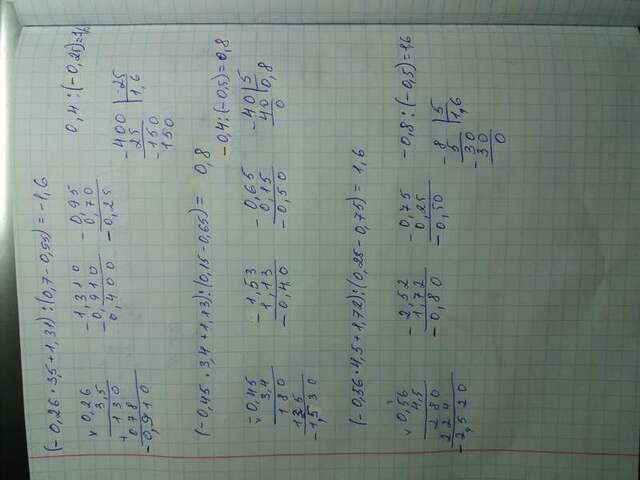 (-0,26 · 3,5+1,31):(0,7-0,55) = -1,6
× 0,26
3,5
+ 130
078
-0,910
- 1,310
-0,910
0,400
- 0,95
0,70
-0,25
0,4 : (-0,25)=1,6
- 400 | -25
25 | 1,6
- 150
150
(-0,45 · 3,4+1,13):(0,15-0,65) = 0,8
-0,4:(-0,5)=0,8
× -0,45
3,4
180
135
-1,530
- 1,53
1,13
-0,40
- 0,65
0,15
-0,50
- 40 | 5
40 | 0,8
0
(-0,56·4,5+1,72):(0,25-0,75) = 1,6
× 0,56
4,5
280
224
-2,520
- 2,52
1,72
-0,80
- 0,75
0,25
-0,50
-0,8 : (-0,5)=1,6
- 8 | 5
5 | 1,6
- 30
30
0